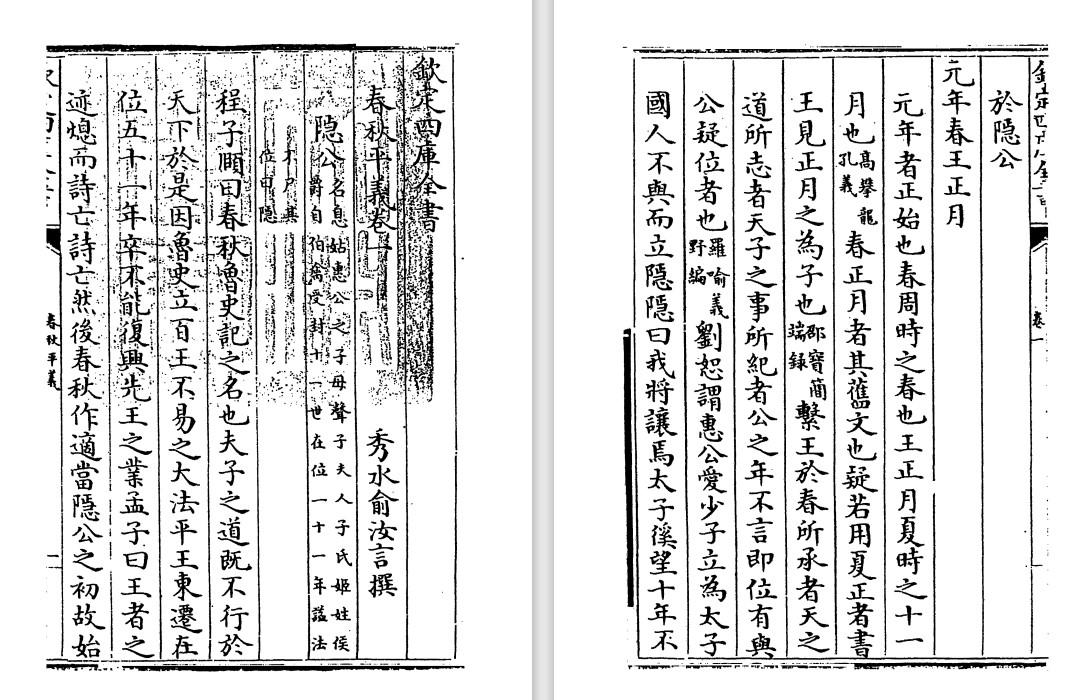 欽定四庫全書
春秋平義卷一　秀水俞汝言撰
隱公　名息姑惠公之子母聲子夫人子氏姬姓侯
爵自伯禽受封十一世在位一十一年諡法
不尸其
位曰隱
程子頤曰春秋魯史記之名也夫子之道既不行於
天下於是因魯史立百王不易之大法平王東遷在
位五十一年卒不能復興先王之業孟子曰王者之
迹熄而詩亡詩亡然後春秋作適當隱公之初故始
春秋平義
卷一
於隱公
元年春王正月
元年者正始也春周時之春也王正月夏時之十一
月也高攀龍孔義春正月者其舊文也疑若用夏正者書
王見正月之為子也邵寶簡端錄繫王於春所承者天之
道所志者天子之事所紀者公之年不言即位有與
公疑位者也羅喻義野編劉恕謂惠公愛少子立為太子
國人不與而立隱隱曰我將讓焉太子徯望十年不